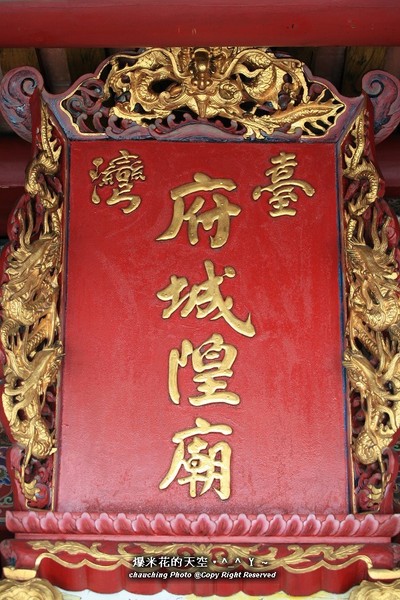 臺灣
府城隍廟
爆米花的天空·^^ㄚ~
chauching Photo @Copy Right Reserved